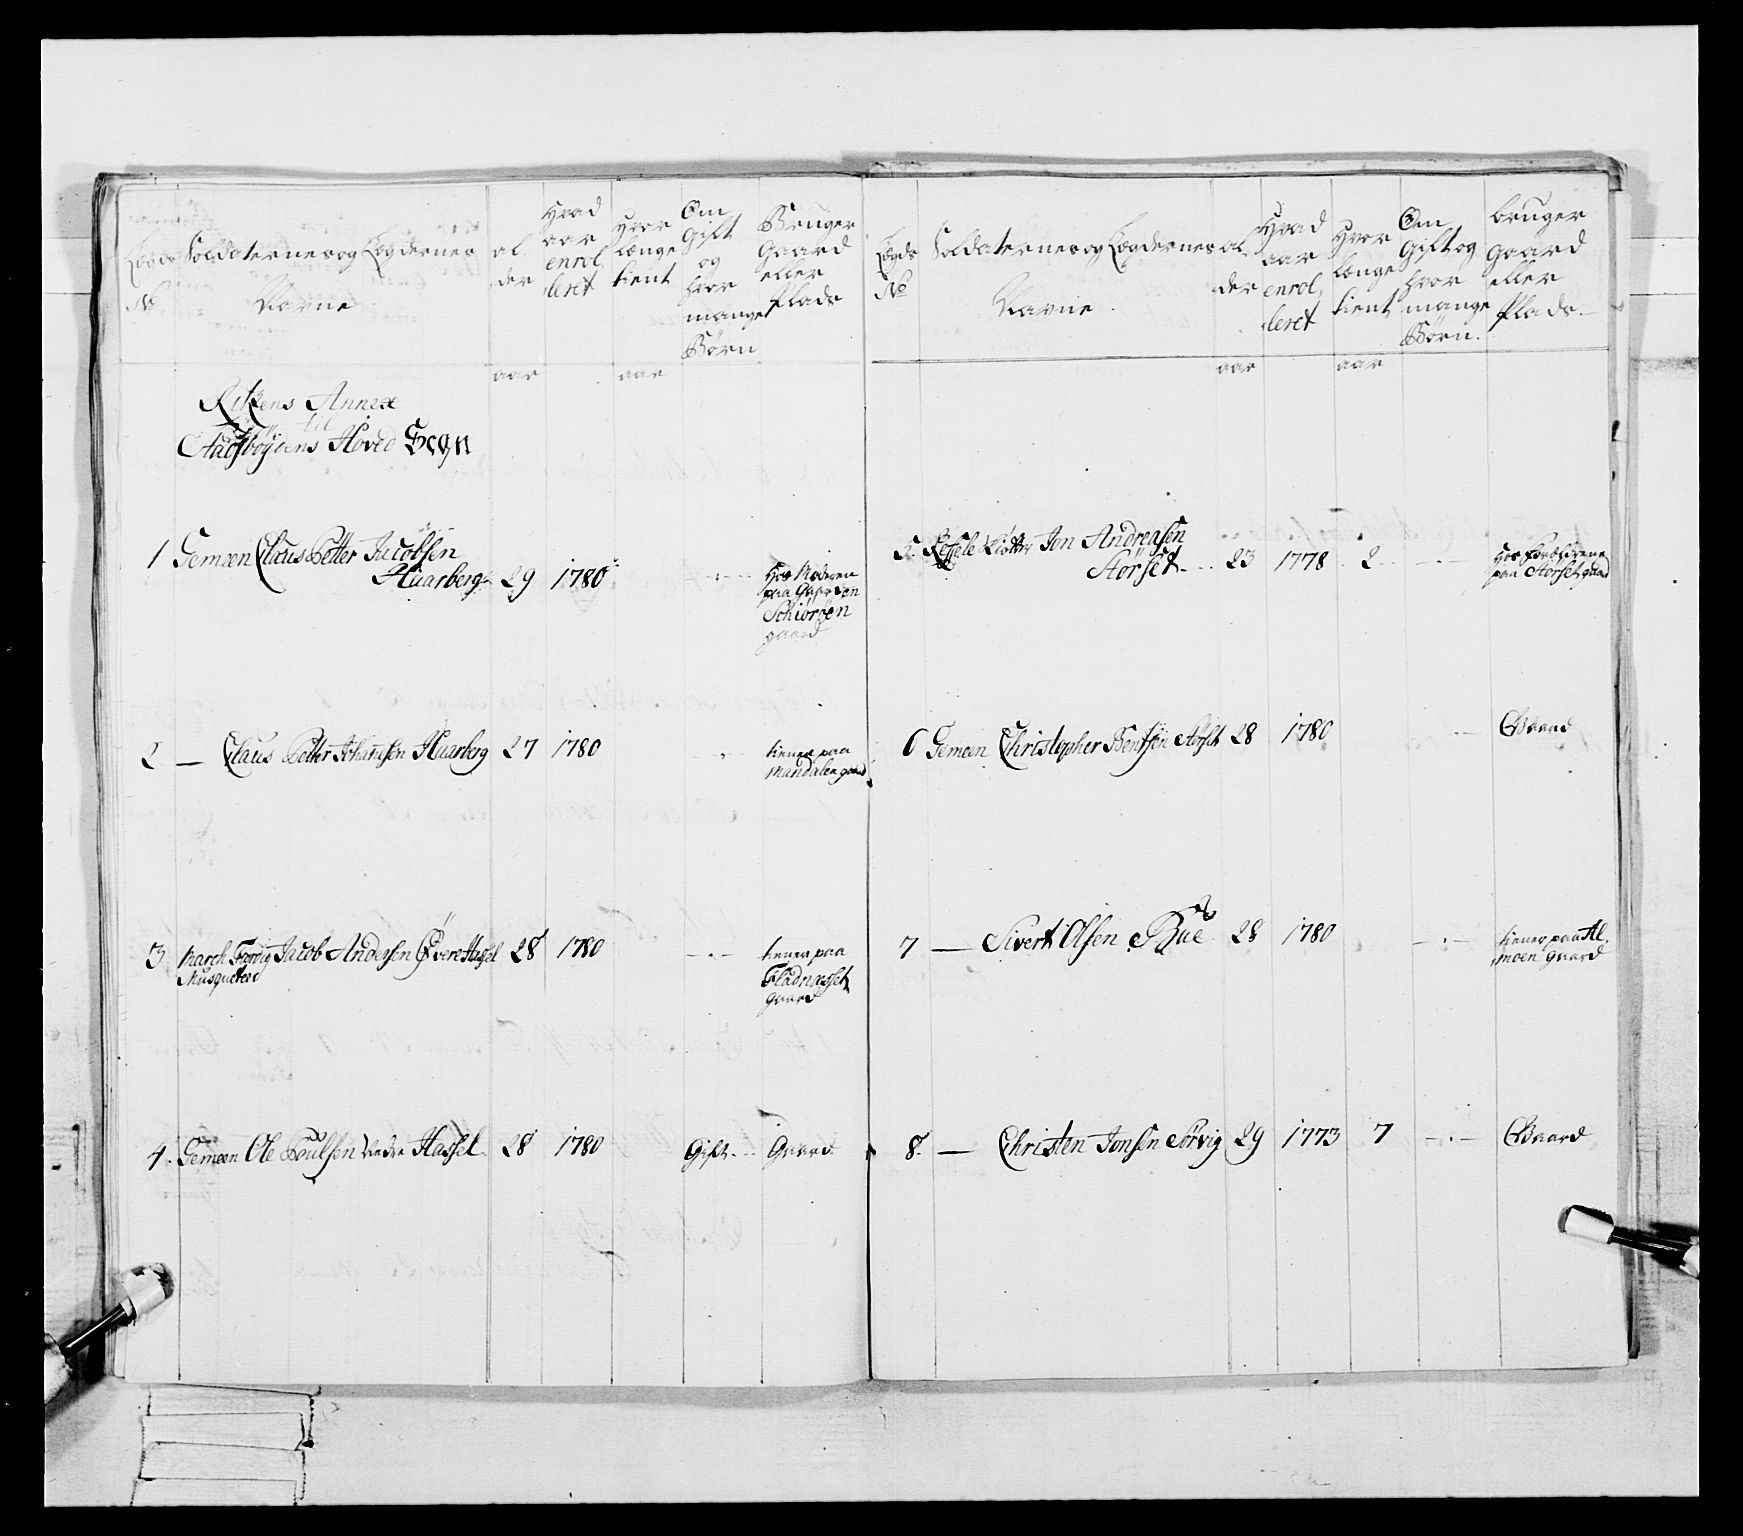 Lægds
No
Soldaternes og Lægdernes
Navne
al
der
Hvad
aar
enrol
leret
Hvor
længe
tient
Om
Gift
og
hvor
mange
Børn
Bruger
Gaard
eller
Plads
aar
aar
Rikens Annex
til
Stadsbøydens Hoved Segn
1 Gemeen Claus Petter Jacobsen
Huarberg 29 1780 -.- Hos Moderen
paa Gaarden
Schiöröen
gaard
2 — Claus Petter Johansen Huarberg 27 1780 tiener paa
Mandalen gaard
3 March Færdig Jacob Andersen Øvere Hassel 28 1780 -.- tiener paa
Musqueteer Fladnesset
gaard
4. Gemeen Ole Poulsen Nedre Hassel 28 1780 Gift Gaard
Lægds
No
Soldaternes og Lægdernes
Navne
al
der
Hvad
aar
enrol
leret
Hvor
længe
tient
Om
Gift og
hvor
mange
Børn.
bruger
Gaard
eller
Plads.
aar
aar
5. Jon Andreasen
Störset 23 1778 2 -.- Hos Forældrene
paa Störset gaard
6 Gemeen Christopher Bentsen Störset 28 1780 - Gaard
7 — Sivert Olsen Bue 28 1780 -.- tiener paa Al
moen gaard
8. — Christen Jonsen Sörvig 29 1773 7 -.- Gaard